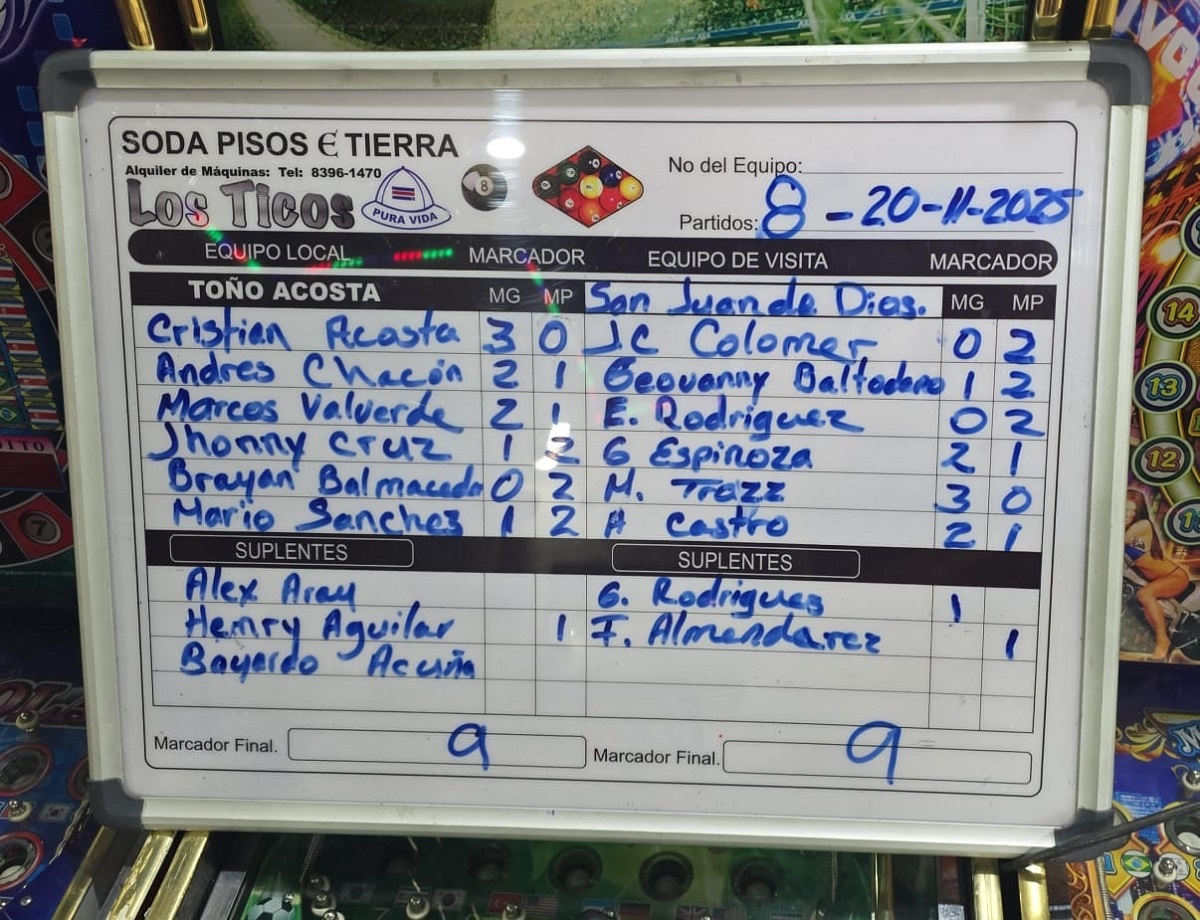 SODA PISOS E TIERRA
Alquiler de Máquinas: Tel: 8396-1470
Los Ticos
PURA VIDA
8
No del Equipo:
Partidos: 8 - 20-11-2025
EQUIPO LOCAL MARCADOR EQUIPO DE VISITA MARCADOR
TOÑO ACOSTA MG MP San Juan de Dios. MG MP
Cristian Acosta 3 0 JC Colomer 0 2
Andres Chacón 2 1 Geovanny Baltodano 1 2
Marcos Valverde 2 1 E. Rodriguez 0 2
Jhonny Cruz 1 2 G Espinoza 2 1
Brayan Balmaceda 0 2 M. Trazz 3 0
Mario Sanchez 1 2 A Castro 2 1
SUPLENTES SUPLENTES
Alex Aray G. Rodrigues 1
Henry Aguilar 1 F. Almendarez 1
Bayardo Acuña
Marcador Final. 9 Marcador Final. 9
14
13
12
7